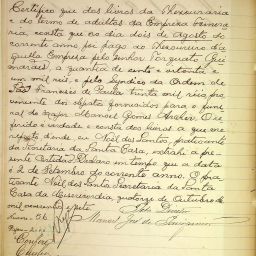 Certifico que dos livros da Thesouraria
e do termo de adultos da Empreza Funera-
ria, consta que no dia dois de Agosto do
corrente anno, foi pago ao Thesoureiro da
quella Empreza pelo Senhor Torquato Gui
marães, a quantia de cento e oitenta e
um mil reis, e pelo Syndico da Ordem de
São Francisco de Paula trinta mil reis, pro
veniente dos objectos fornecidos para o fune
ral do major Manoel Gomes Archer. O re
ferido é verdade e consta dos livros a que me
reporto donde eu Noel dos Santos,
da Secretaria da Santa Casa, extrahi a pre
sente Certidão. Declaro em tempo que a data
é 2 de Setembro do corrente anno. O pra
ticante Noel dos Santos. Secretaria da Santa
Casa da Misericordia, quatorze de Outubro de
mil novecentos e sete.
Manoel José de
Confere